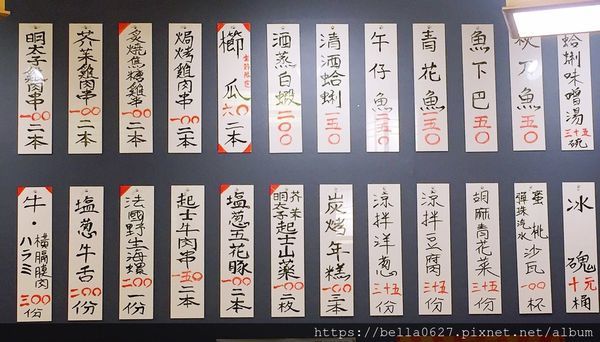 蛤蜊味噌湯 三十五 碗
秋刀魚 一五〇
魚下巴 一五〇
青花魚 一五〇
午仔魚 一五〇
清酒蛤蜊 一五〇
酒蒸白蝦 二〇〇
櫛瓜 六〇 二本
焗烤雞肉串 一〇〇 二本
炙燒焦糖雞串 一〇〇 二本
芥茉雞肉串 一〇〇 二本
明太子雞肉串 一〇〇 二本
冰塊 十元 桶
蜜桃沙瓦 彈珠汽水 一〇〇 杯
胡麻青花菜 三十五 份
涼拌豆腐 三十五 份
涼拌洋蔥 三十五 份
炭烤年糕 一〇〇 三本
芥茉 明太子 起士山藥 一〇〇 二枚
塩蔥五花豚 一〇〇 二本
起士牛肉串 一五〇 二本
法國野生海螺 二〇〇 一份
塩蔥牛舌 二〇〇 份
牛・橫膈膜肉 ハラミ 三〇〇 份
https://bella0627.pixnet.net/album